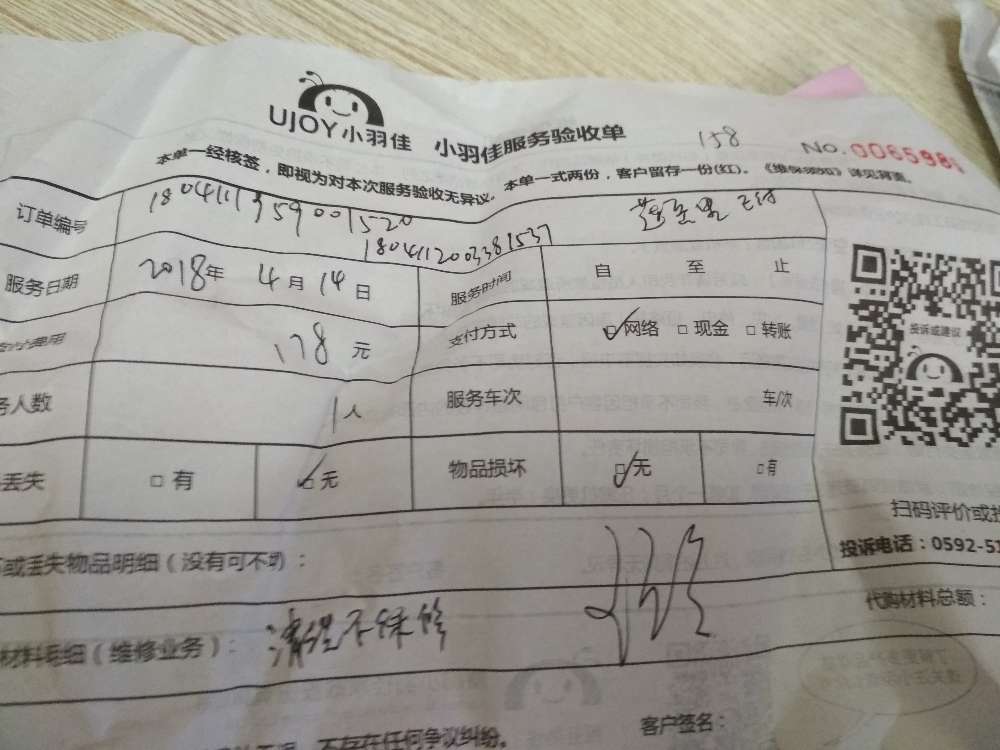 UJOY小羽佳 小羽佳服务验收单
158
No.006598
本单一经核签，即视为对本次服务验收无异议。本单一式两份，客户留存一份(红)。《维保须知》详见背面。
订单编号
1804112003381537
已付
服务日期 2018年 4月14日 服务时间 自 至 止
付费用 178元 支付方式 网络 现金 转账
务人数 1人 服务车次 车/次
丢失 有 无 物品损坏 无 有
投诉或建议
扫码评价或投
投诉电话：0592-51
或丢失物品明细（没有可不填）：
代购材料总额：
材料明细（维修业务）： 清理不保修
不存在任何争议纠纷。
客户签名：